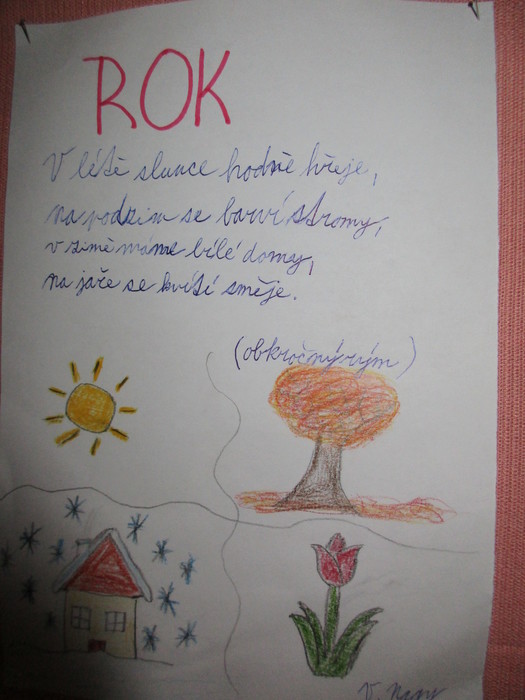 ROK
V létě slunce hodně hřeje,
na podzim se barví stromy,
v zimě máme bílé domy,
na jaře se kvítí směje.
(obkročný rým)
V.